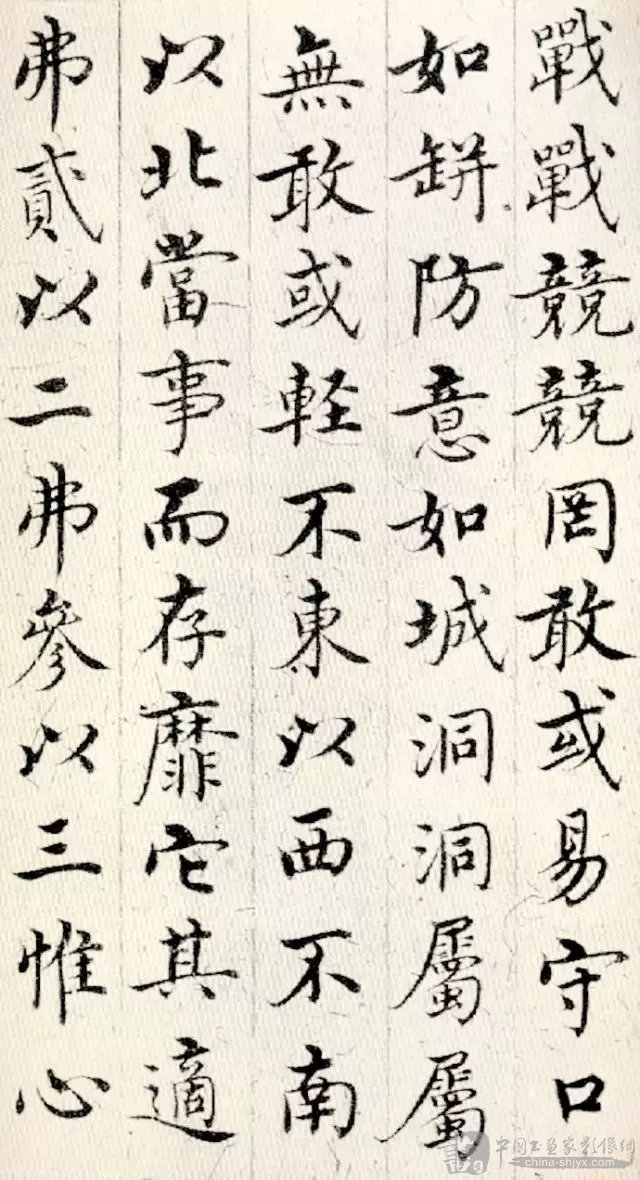 戰戰競競罔敢或易守口
如缾防意如城洞洞屬屬
無敢或軽不東以西不南
以北當事而存靡它其適
弗貳以二弗參以三惟心
中國工画家影像網
china-shjyx.com